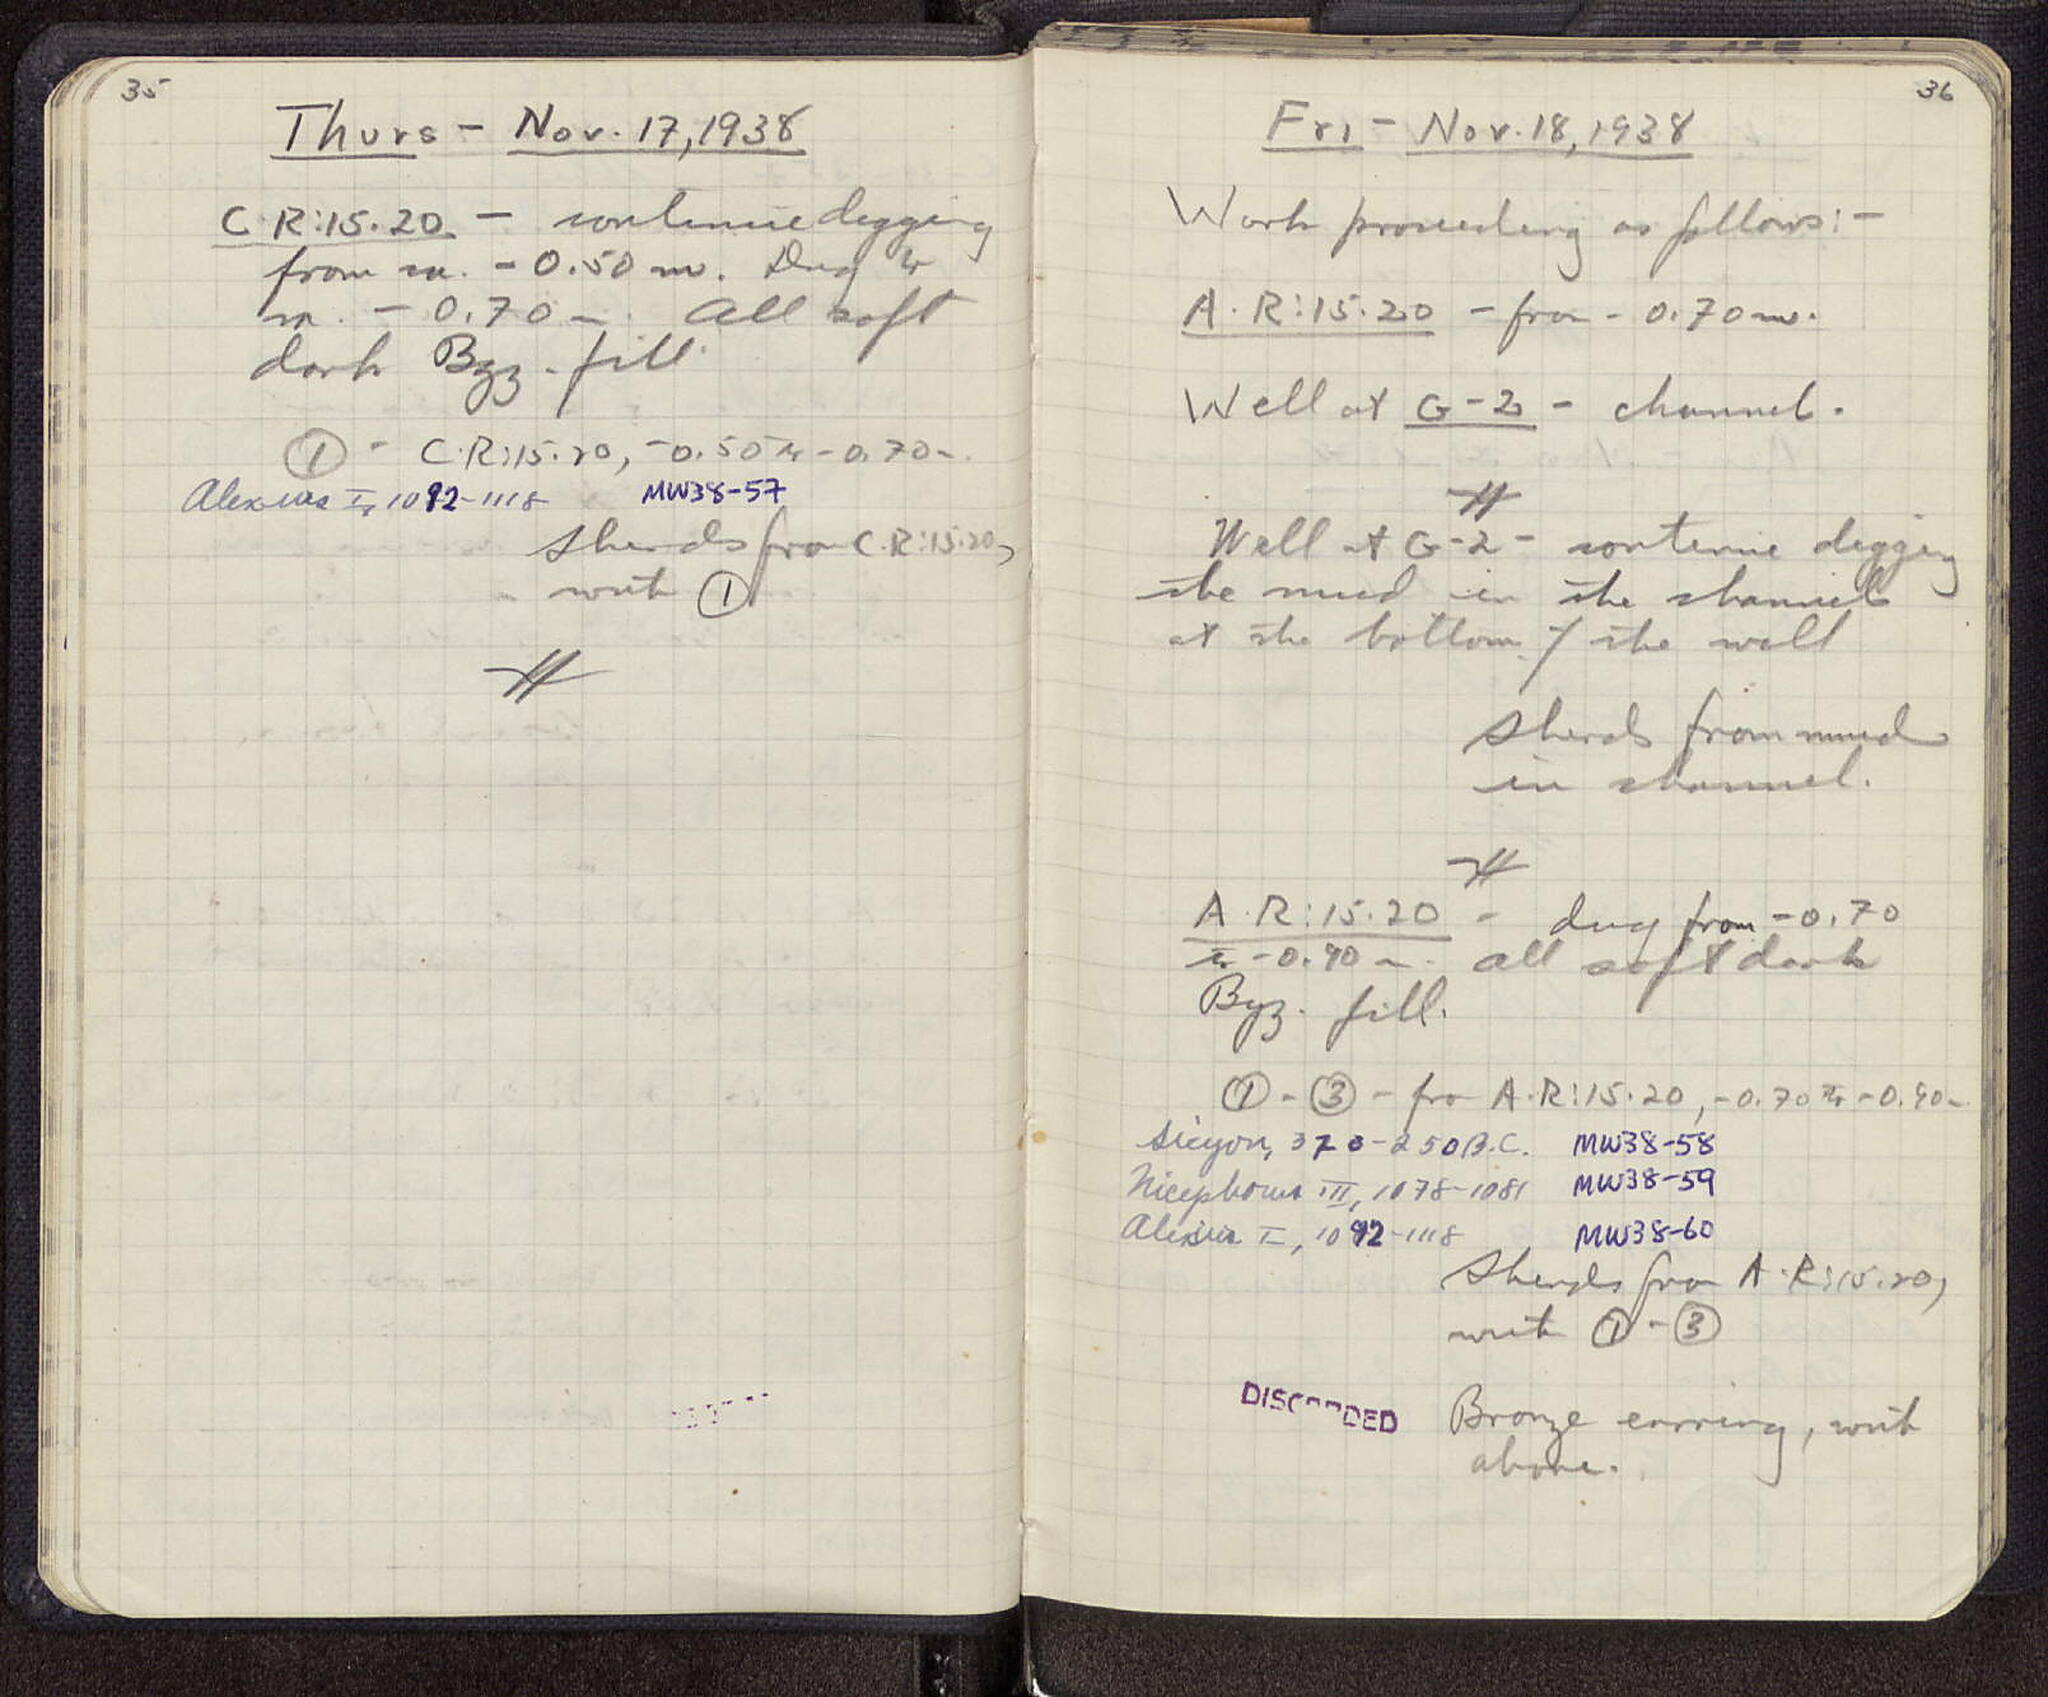 35
Thurs - Nov. 17, 1938
C·R:15·20 - continue digging
from m. - 0.50 m. Dug to
m. - 0.70 m. All soft
dark Byz. fill.
① - C·R:15·20, -0.50 to -0.70 m.
Alexius I, 1092-1118 MW38-57
Sherds from C·R:15·20,
with ①
36
Fri - Nov. 18, 1938
Work proceeding as follows:-
A·R:15·20 - from - 0.70 m.
Well at G-2 - channel.
Well at G-2 - continue digging
the mud in the channel
at the bottom of the well
Sherds from mud
in channel.
A·R:15·20 - dug from -0.70
to -0.90 m. All soft dark
Byz. fill.
① - ③ - from A·R:15·20, -0.70 to -0.90 m.
Sicyon, 370-250 B.C. MW38-58
Nicephorus III, 1078-1081 MW38-59
Alexius I, 1092-1118 MW38-60
Sherds from A·R:15·20,
with ① - ③
DISCARDED Bronze earring, with
above.